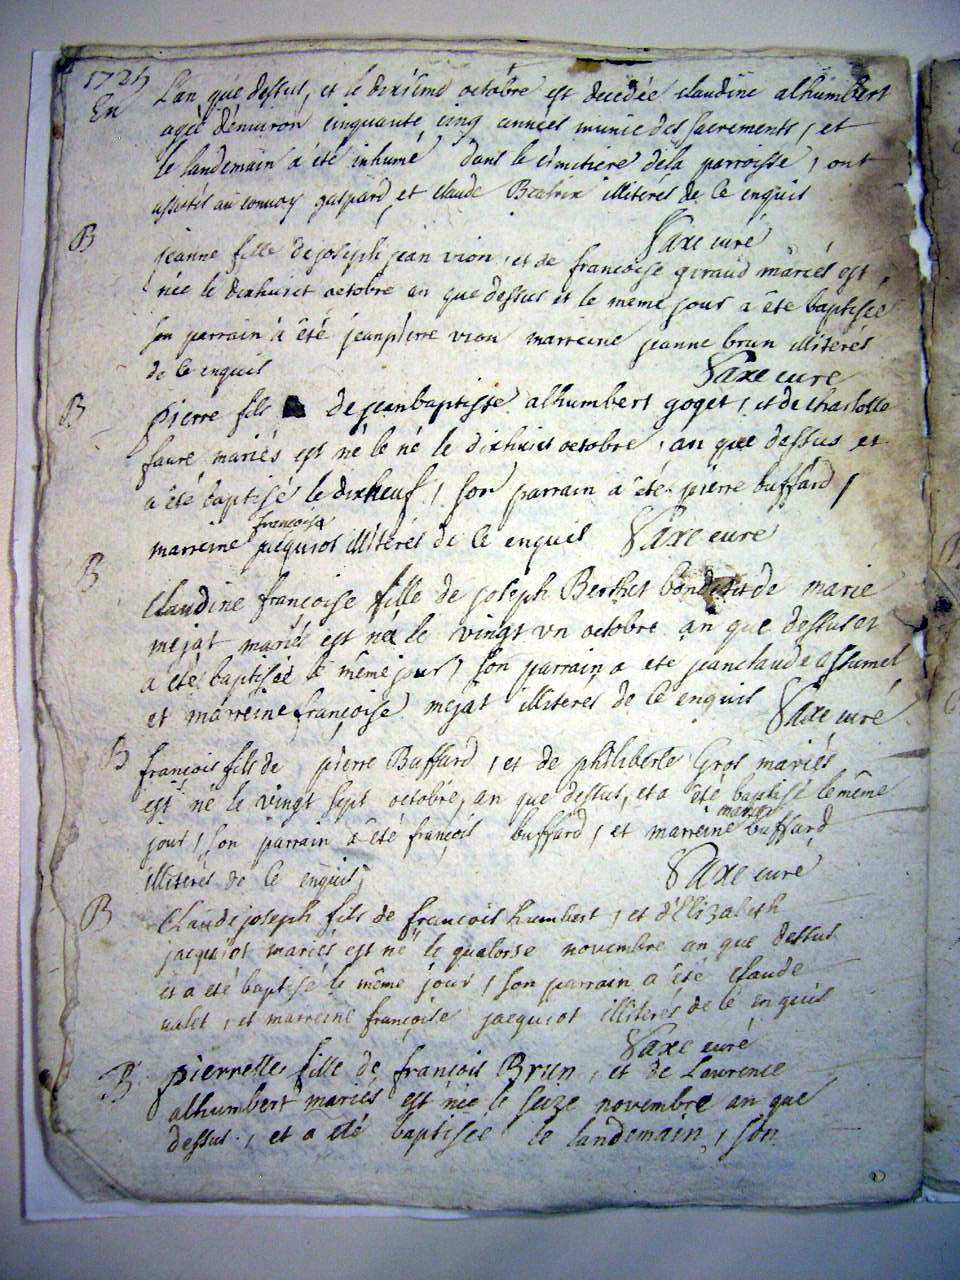 172
En L'an que dessus, et le dixiême octobre est decedée claudine alhumbert
agée d'environ cinquante cinq années munie des sacrements, et
le landemain a été inhumé dans le cimitiere de la parroisse, ont
assistés au convoy gaspard et claude Beatrix illiteres de ce enquis
Saxe curé
B jeanne fille de joseph jean vion, et de francoise giraud mariés est
née le dixhuict octobre an que dessus et le meme jour a ête baptisée
son parrain à été jeanpierre vion marreine jeanne brun illiterés
de ce enquis
Saxe curé
B pierre fils de jeanbaptiste alhumbert goget, et de charlotte
faure mariés est né le né le dixhuict octobre, an que dessus et
a été baptisé le dixneuf, son parrain a été pierre buffard,
françoise
marreine jacquiot illiterés de ce enquis Saxe curé
B claudine françoise fille de joseph Berthet bondet et de marie
mejat mariés est née le vingt vn octobre an que dessus et
a été baptisée le même jour, son parrain a ete jeanclaude assumel
et marreine françoise mejat illiterés de ce enquis Saxe curé
B françois fils de pierre Buffard, et de philiberte Gros mariés
est né le vingt sept octobre, an que dessus, et a été baptisé le même
jour, son parrain a été françois buffard, et marreine buffard
illiterés de ce enquis,
Saxe curé
B Claude joseph fils de françois humbert, et d'Elizabeth
jacquiot mariés est né le quatorse novembre an que dessus
et a eté baptisé le même jour, son parrain a été claude
valet, et marreine françoise jacquiot illiterés de ce enquis
Saxe curé
B pierrette fille de françois Brun, et de Laurence
alhumbert mariés est née le seize novembre an que
dessus, et a eté baptisée le landemain, son